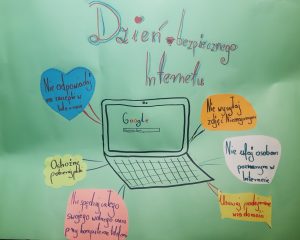 Dzień bezpiecznego
Internetu
Nie odpowiadaj
na zaczepki w
Internecie
Google
Nie wysyłaj
zdjęć nieznajomym
Ostrożnie
pobieraj pliki
Nie ufaj osobom
poznanym w
Internecie
Nie spędzaj całego
swojego wolnego czasu
przy komputerze
Usuwaj podejrzane
wiadomości